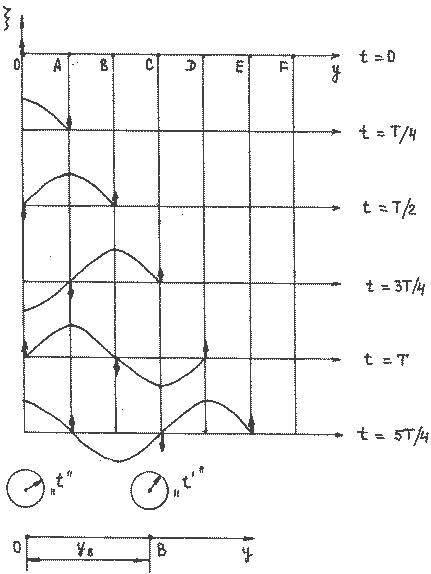 ξ
O A B C D E F y t = 0
t = T/4
t = T/2
t = 3T/4
t = T
t = 5T/4
„t" „t'"
O y_B B y